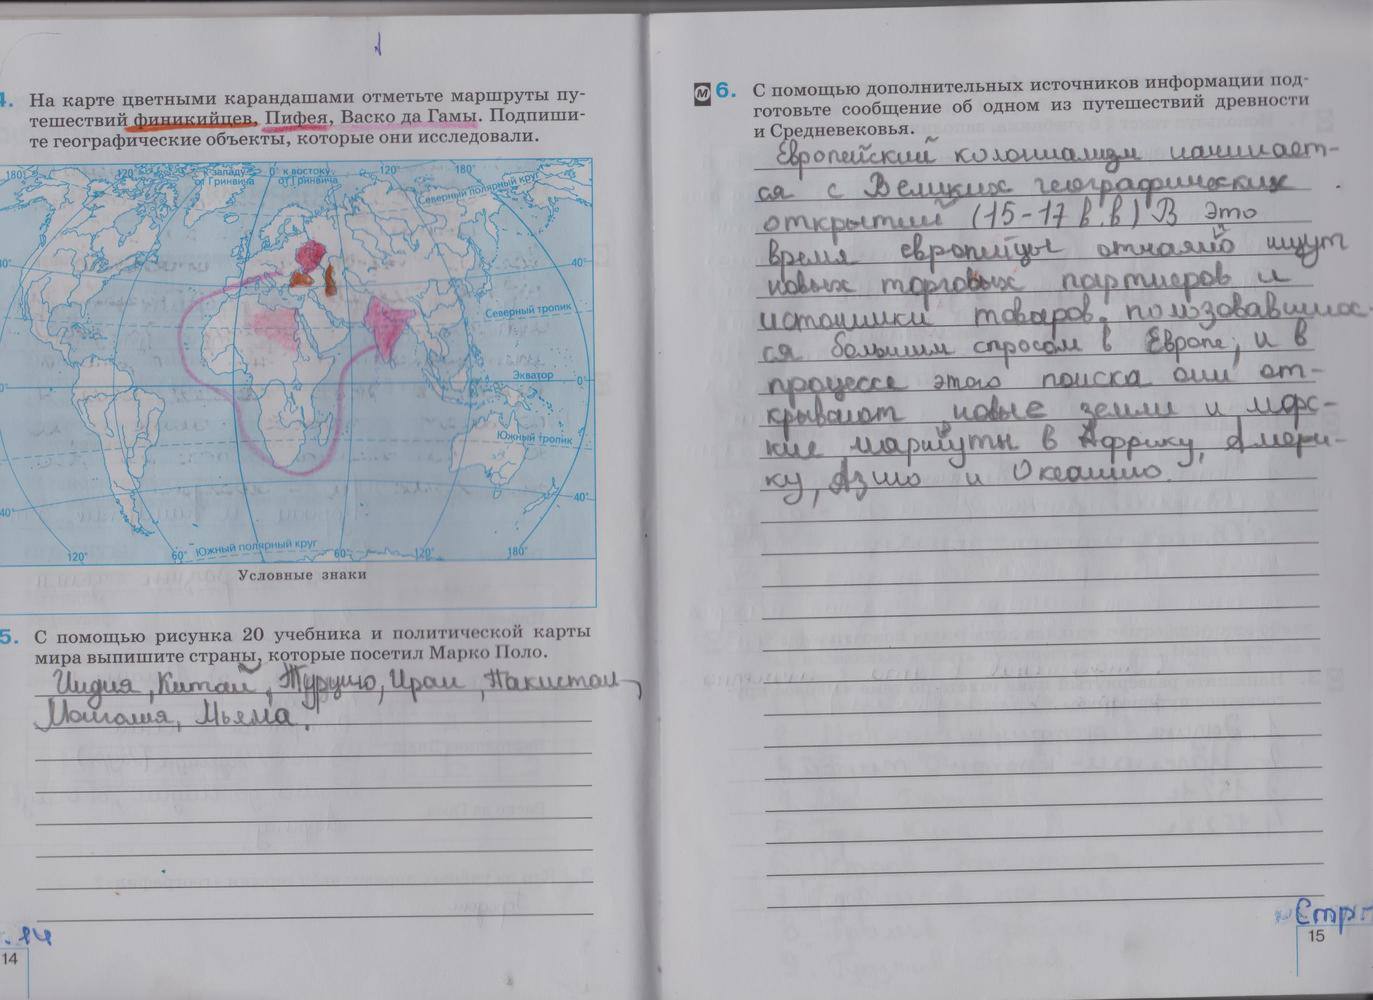 4. На карте цветными карандашами отметьте маршруты пу-
тешествий финикийцев, Пифея, Васко да Гамы. Подпиши-
те географические объекты, которые они исследовали.
180° 120° к западу от Гринвича 0° к востоку от Гринвича 120° 180°
Северный полярный круг
40°
Северный тропик
Экватор
0° 0°
Южный тропик
40° 40°
Южный полярный круг
120° 60° 60° 120° 180°
Условные знаки
5. С помощью рисунка 20 учебника и политической карты
мира выпишите страны, которые посетил Марко Поло.
Индия, Китай, Турцию, Иран, Пакистан,
Монголия, Мьяма.
14
14
М 6. С помощью дополнительных источников информации под-
готовьте сообщение об одном из путешествий древности
и Средневековья.
Европейский колониализм начинает-
ся с Великих географических
открытий (15-17 в.в) В это
время европейцы отчаянно ищут
новых торговых партнеров и
источники товаров, пользовавшихс-
ся большим спросом в Европе, и в
процессе этого поиска они от-
крывают новые земли и морс-
кие маршруты в Африку, Амери-
ку, Азию и Океанию.
Стр
15